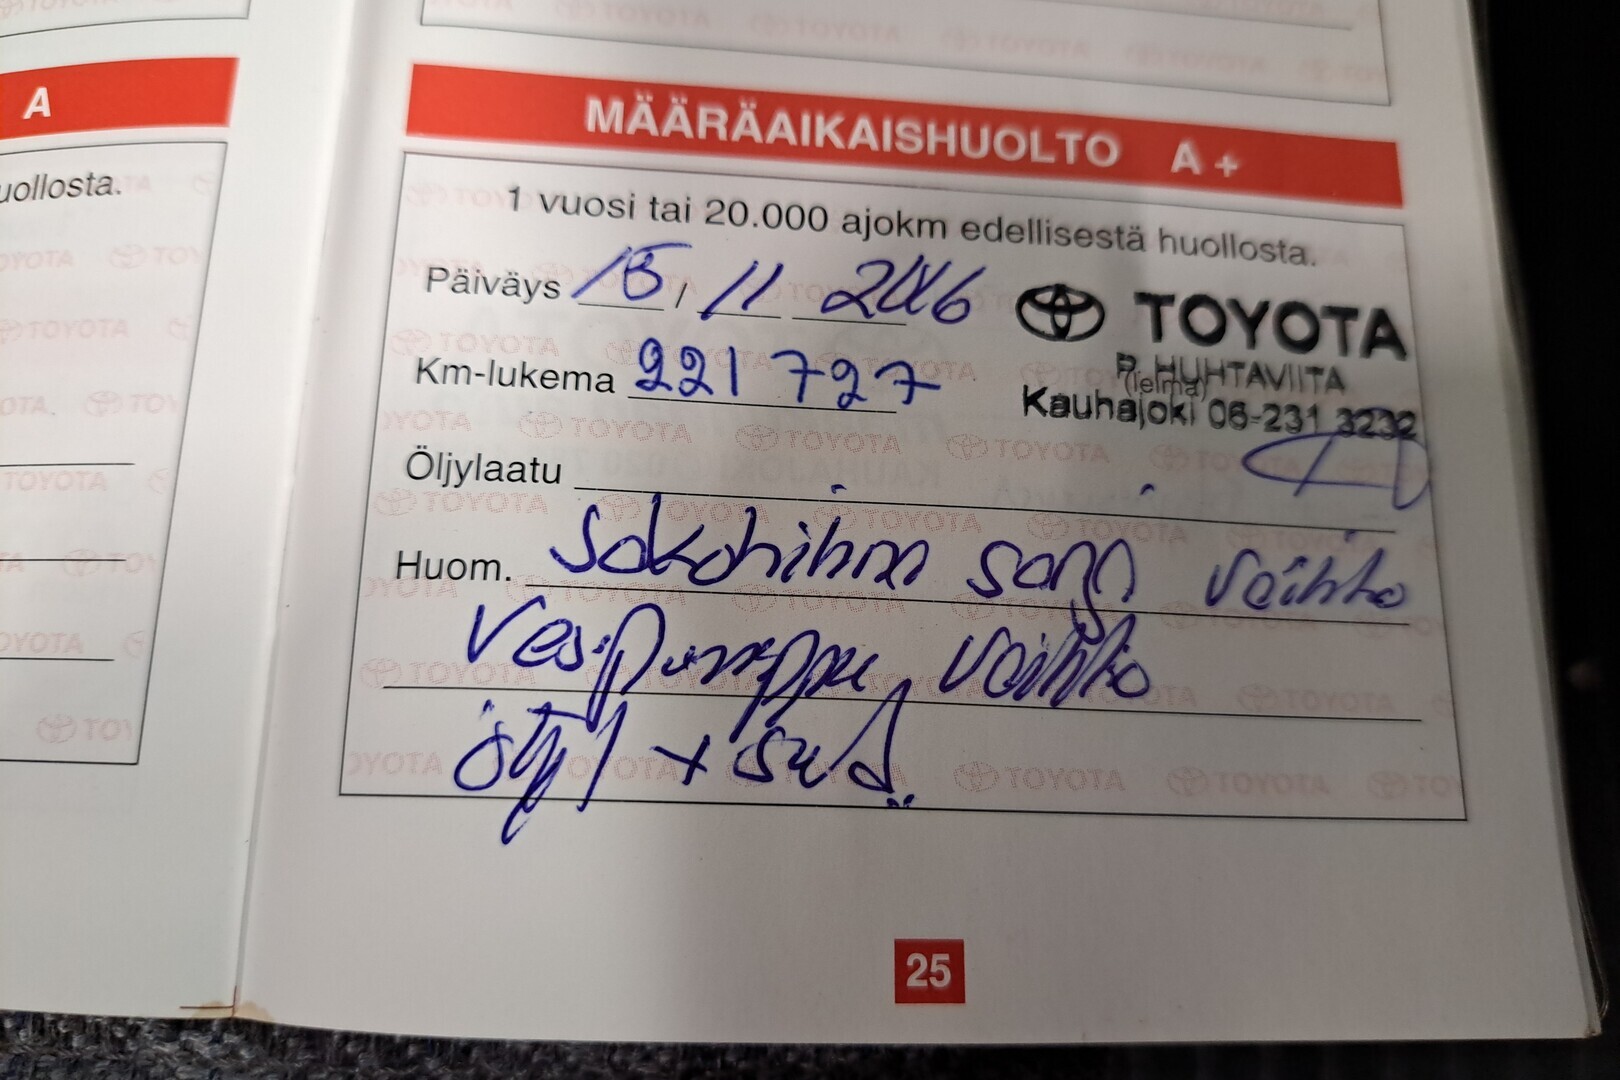 A
uollosta.
MÄÄRÄAIKAISHUOLTO A +
1 vuosi tai 20.000 ajokm edellisestä huollosta.
Päiväys 15 / 11 2016
TOYOTA
P. HUHTAVIITA
Kauhajoki 06-231 3232
Km-lukema 221 727
Öljylaatu
Huom. Jakohihna sarja vaihto
Vesipumppu vaihto
öljyt + suod.
25